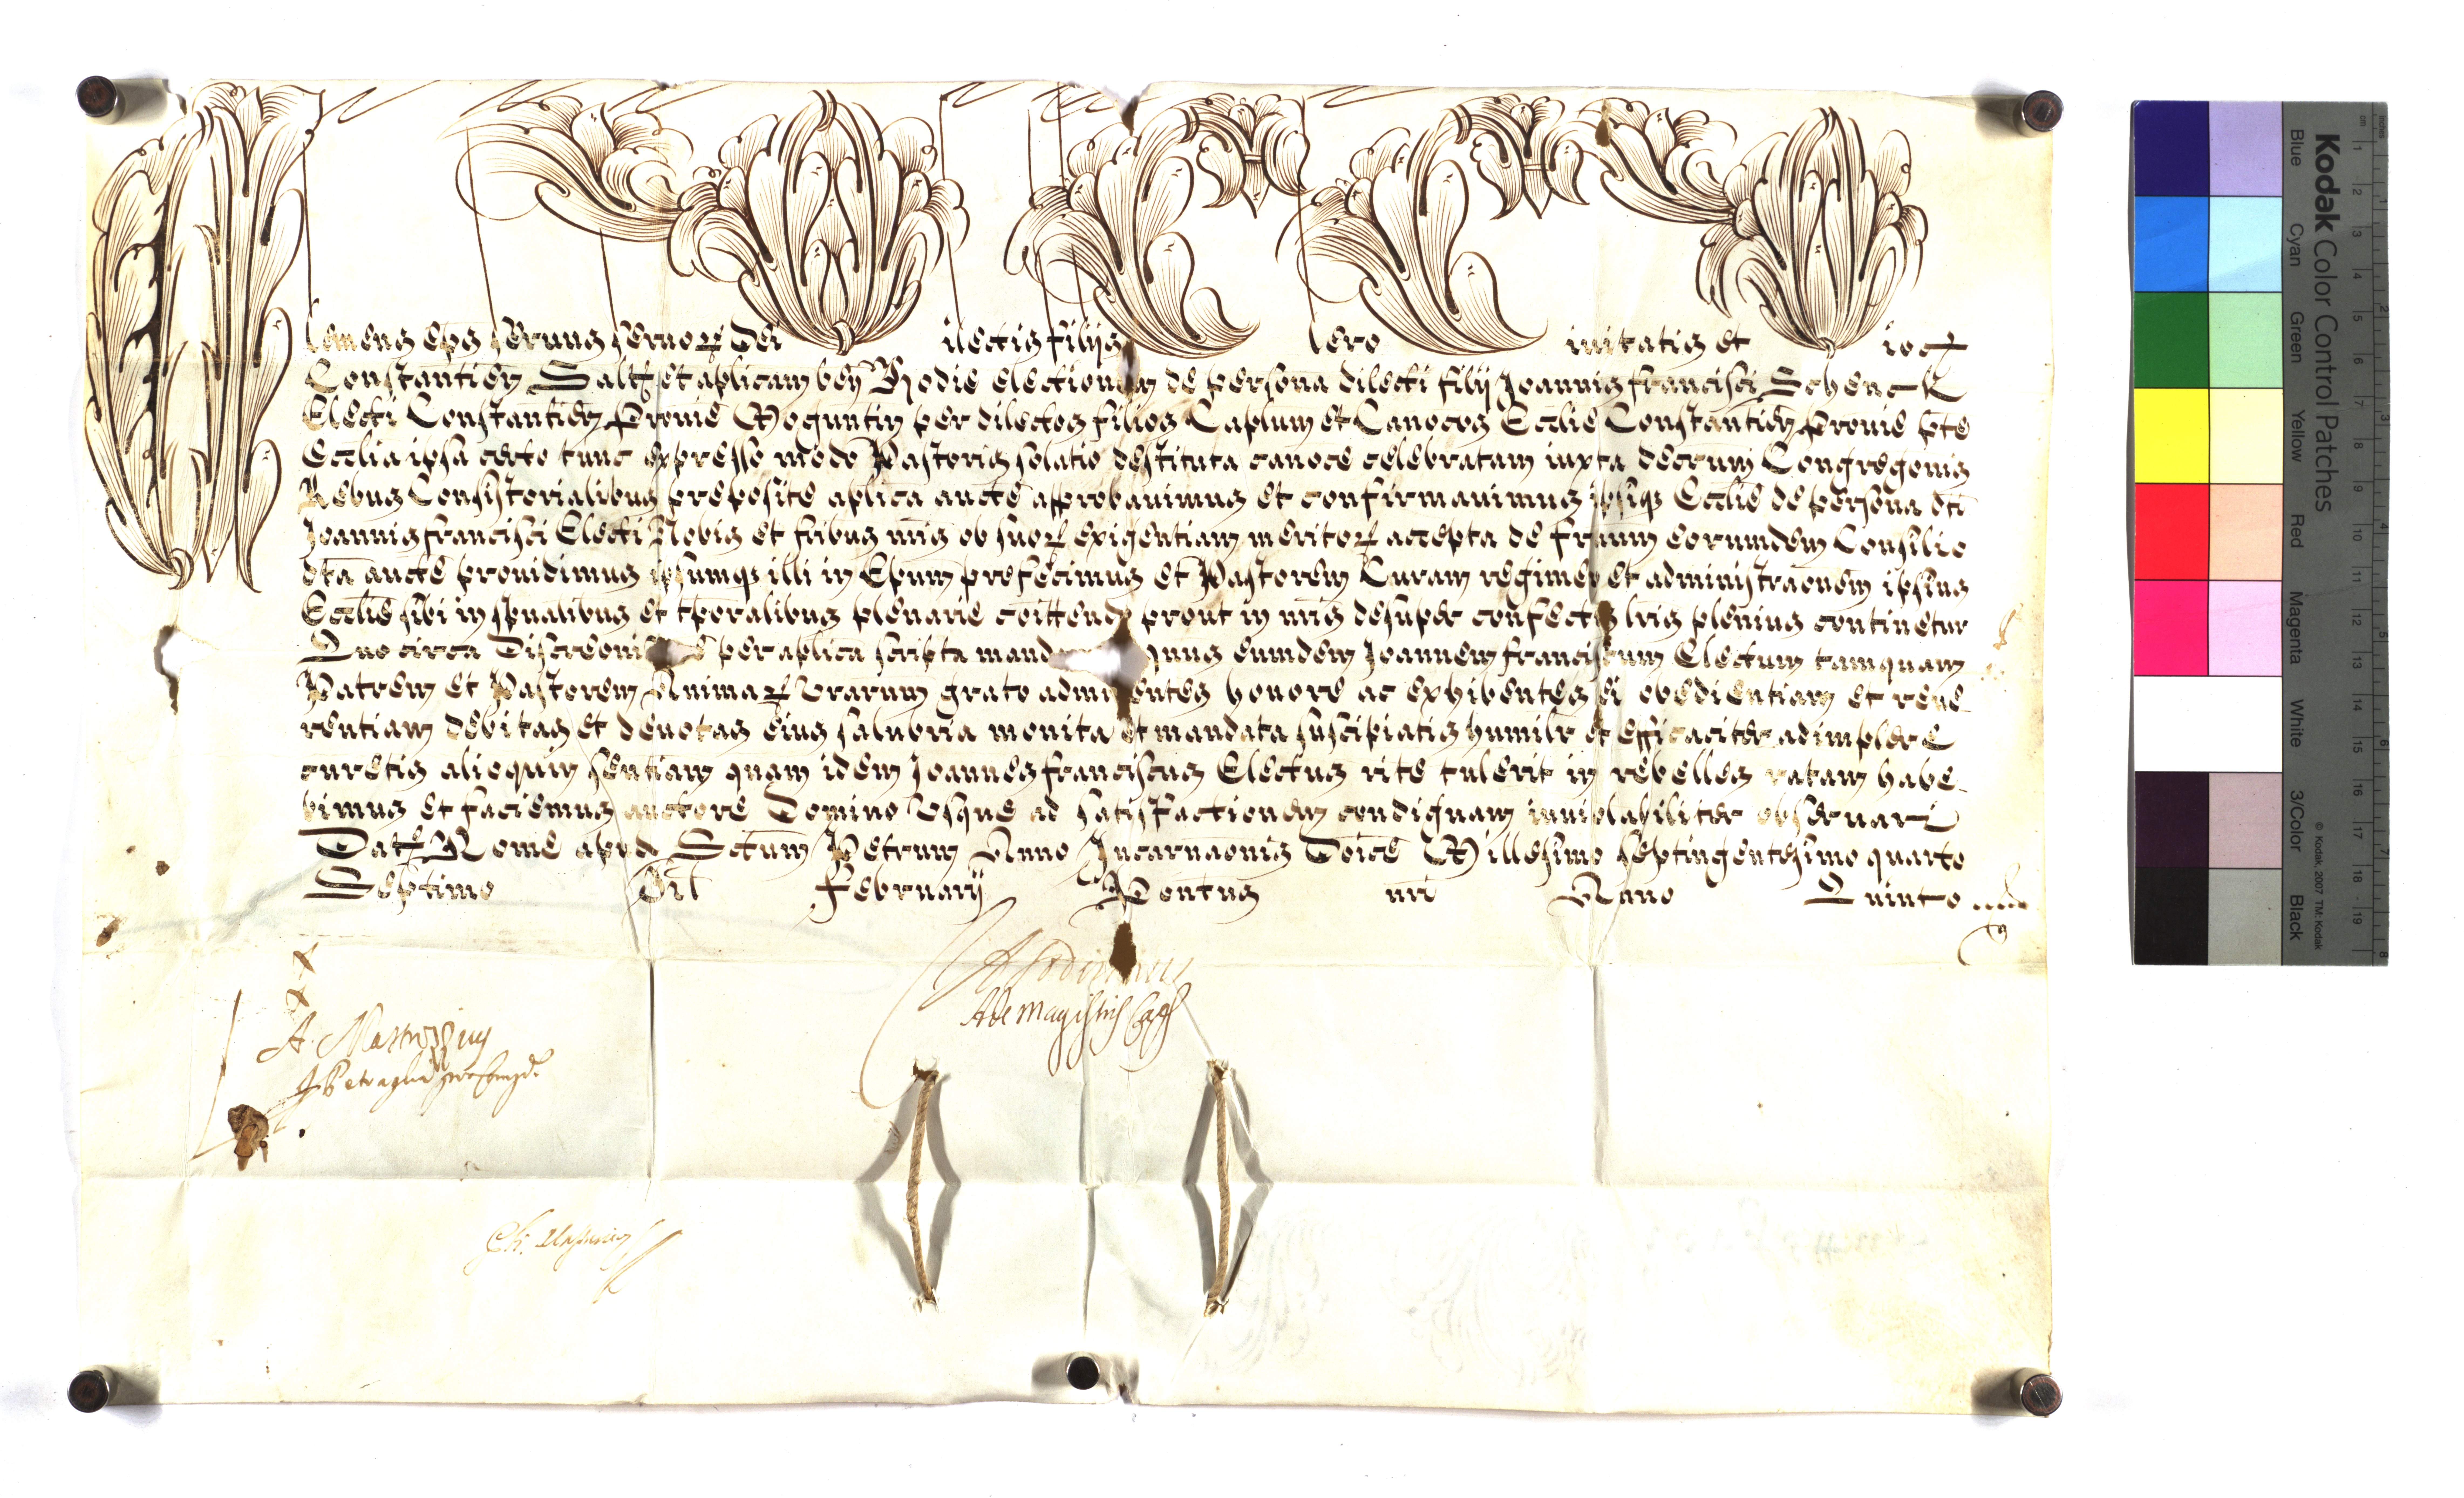 Clemens Eps Servus Servoꝝ Dei Dilectis filijs Clero Civitatis et Dioc
Constantien Saltem et aplicam ben Hodie electionem de persona dilecti filij Joannis francisci Schenck
Electi Constantien Provie Moguntin per dilectos filios Caplum et Canocos Ecclie Constantien Provie pte
Ecclia ipsa certo tunc expresso modo Pastoris solatio destituta canoce celebratam iuxta decrum Congregonis
Rebus Consistorialibus preposite aplica aucte approbavimus et confirmavimus ipsiqz Ecclie de persona dti
Joannis francisci Electi Nobis et fribus nris ob suoꝝ exigentiam meritoꝝ accepta de frum eorumdem Consilio
dta aucte providimus ipsumqz illi in Epum prefecimus et Pastorem Curam regimen et administraonem ipsius
Ecclie sibi in spualibus et tporalibus plenarie coittend prout in nris desuper confectis lris plenius continetur
Quo circa Discreoni per aplica scripta mand quus eumdem Joannem franciscum Electum tamquam
Patrem et Pastorem Animaꝝ Vrarum grato admittentes honore ac exhibentes ei obedientiam et reve-
rentiam debitas et devotas eius salubria monita et mandata suscipiatis humilr et efficaciter adimplere
curetis alioquin sentiam quam idem Joannes franciscus Electus rite tulerit in rebelles ratam habe-
bimus et faciemus auctore Domino Vsque ad satisfactionem condignam inviolabiliter observari
Dat Rome apud Sctum Petrum Anno Incarnaonis Doice Millesimo septingentesimo quarto
Septimo Id februarij Pontus nri Anno Quinto
A de Magistris
A. Martuzzius
J. Petraglia
Kodak Color Control Patches
Blue Cyan Green Yellow Red Magenta White 3/Color Black
© Kodak, 2007 TM: Kodak
cm 1 2 3 4 5 6 7 8 9 10 11 12 13 14 15 16 17 18 19
inches 1 2 3 4 5 6 7 8